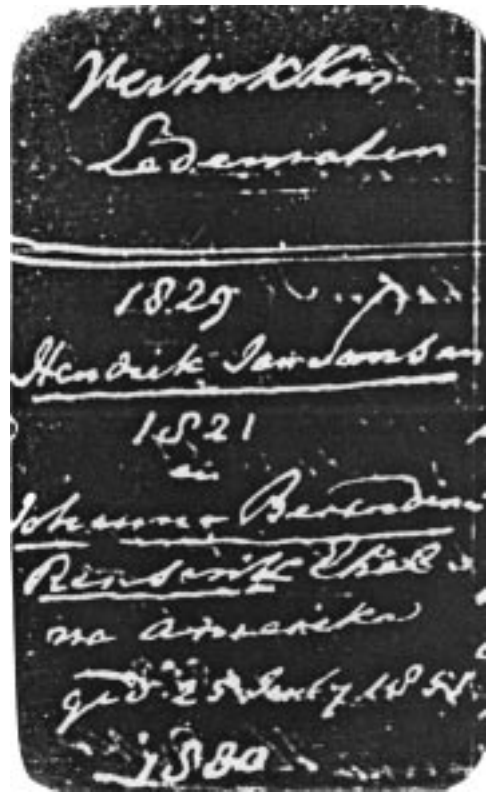 Vertrokken
Ledematen
1829
Hendrik Jan Jansen
1821
en
Johanna Berendina
Renserink Ehel
na Amerika
25 1858
1880